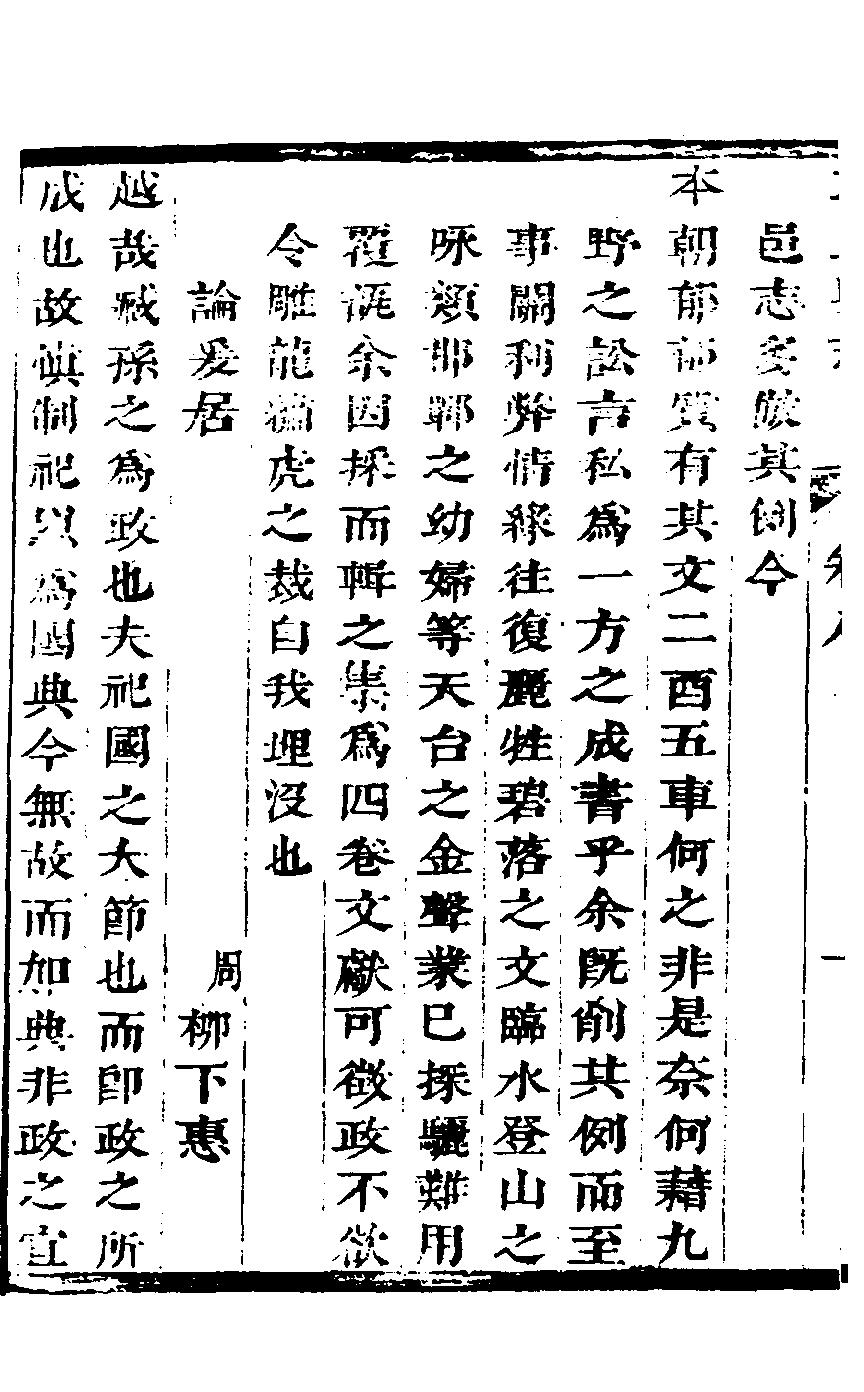 卷八
一
邑志多倣其例今
本朝郁郁質有其文二酉五車何之非是奈何藉九
野之訟言私為一方之成書乎余既削其例而至
事關利弊情緣往復麗牲碧落之文臨水登山之
咏類邯鄲之幼婦等天台之金聲業已採驪難用
覆瓿余因採而輯之彙為四卷文獻可徵政不欲
令雕龍繡虎之裁自我埋沒也
論爰居
周柳下惠
越哉臧孫之為政也夫祀國之大節也而節政之所
成也故慎制祀以為國典今無故而加典非政之宜